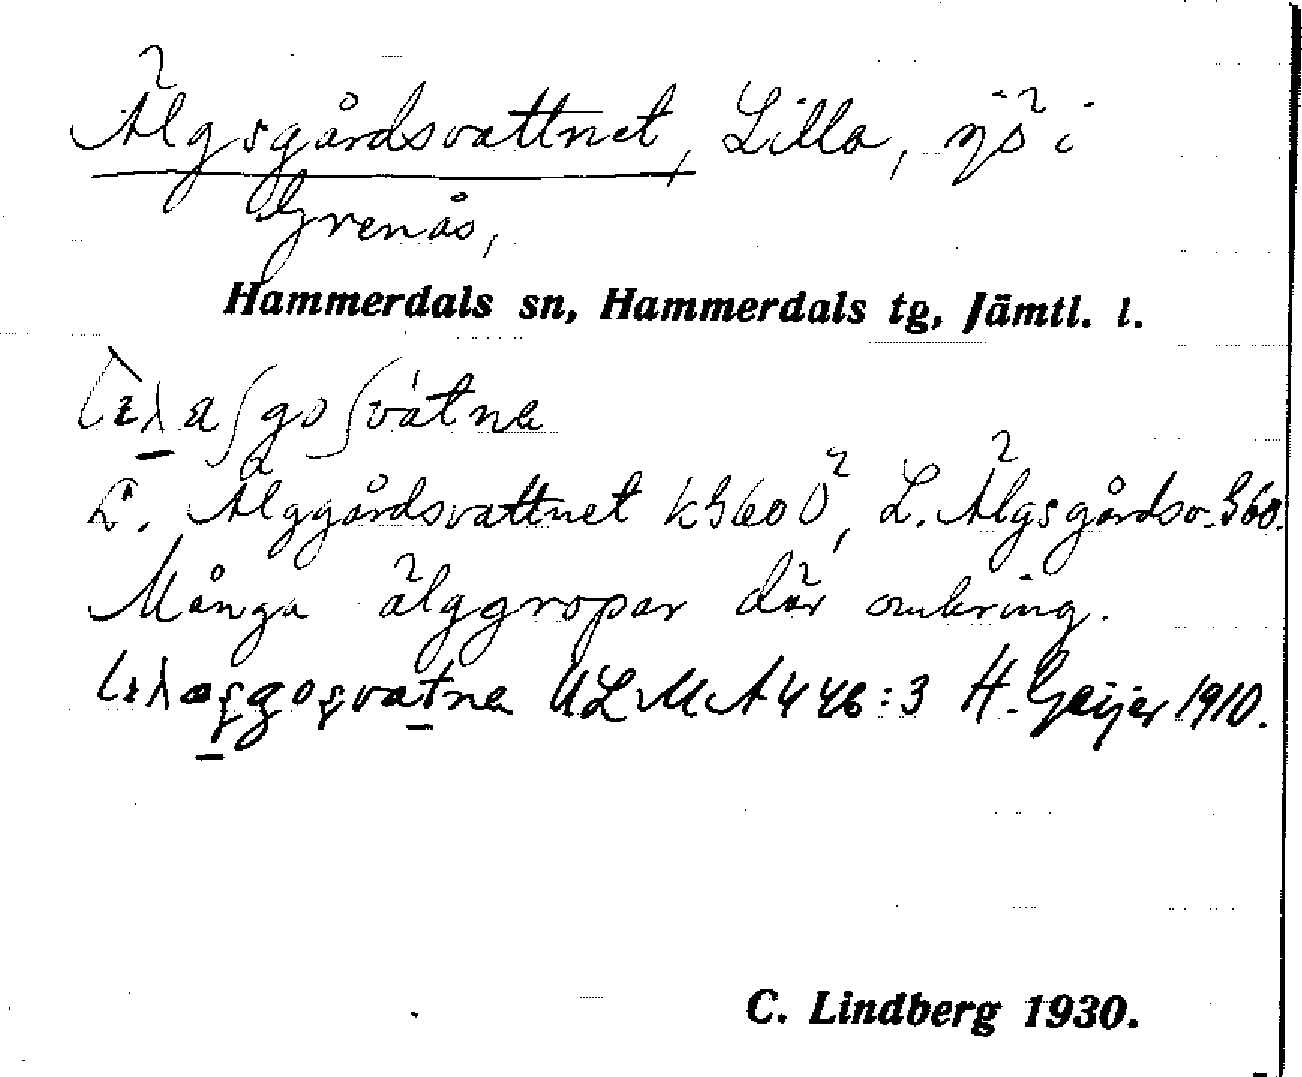 Älgsgårdsvattnet, Lilla, sjö i
Grenås,
Hammerdals sn, Hammerdals tg, Jämtl. l.
L. Älggårdsvattnet k G60 Ö, L. Älgsgårdsv. G60.
Många älggropar där omkring.
ULMA 446:3 H. Geijer 1910.
C. Lindberg 1930.